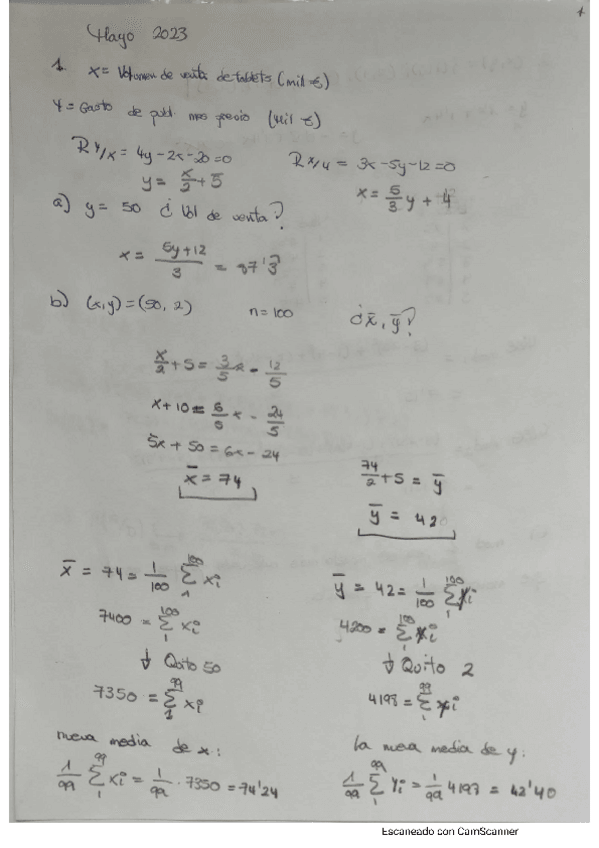 1
Mayo 2023
1. x = Volumen de venta de tablets (mil €)
y = Gasto de publ. mes previo (mil €)
R y/x = 4y - 2x - 20 = 0
y = x/2 + 5
R x/y = 3x - 5y - 12 = 0
x = 5/3 y + 4
a) y = 50 ¿Vol de venta?
x = (5y+12)/3 = 87'3
b) (x,y) = (50, 2) n = 100 ¿x̄, ȳ?
x/2 + 5 = 3/5 x - 12/5
x + 10 = 6/5 x - 24/5
5x + 50 = 6x - 24
x̄ = 74
74/2 + 5 = ȳ
ȳ = 42
x̄ = 74 = 1/100 Σ₁¹⁰⁰ xi
7400 = Σ₁¹⁰⁰ xi
↓ Quito 50
7350 = Σ₁⁹⁹ xi
nueva media de x:
1/99 Σ₁⁹⁹ xi = 1/99 · 7350 = 74'24
ȳ = 42 = 1/100 Σ₁¹⁰⁰ yi
4200 = Σ₁¹⁰⁰ yi
↓ Quito 2
4198 = Σ₁⁹⁹ yi
la nueva media de y:
1/99 Σ₁⁹⁹ yi = 1/99 4198 = 42'40
Escaneado con CamScanner